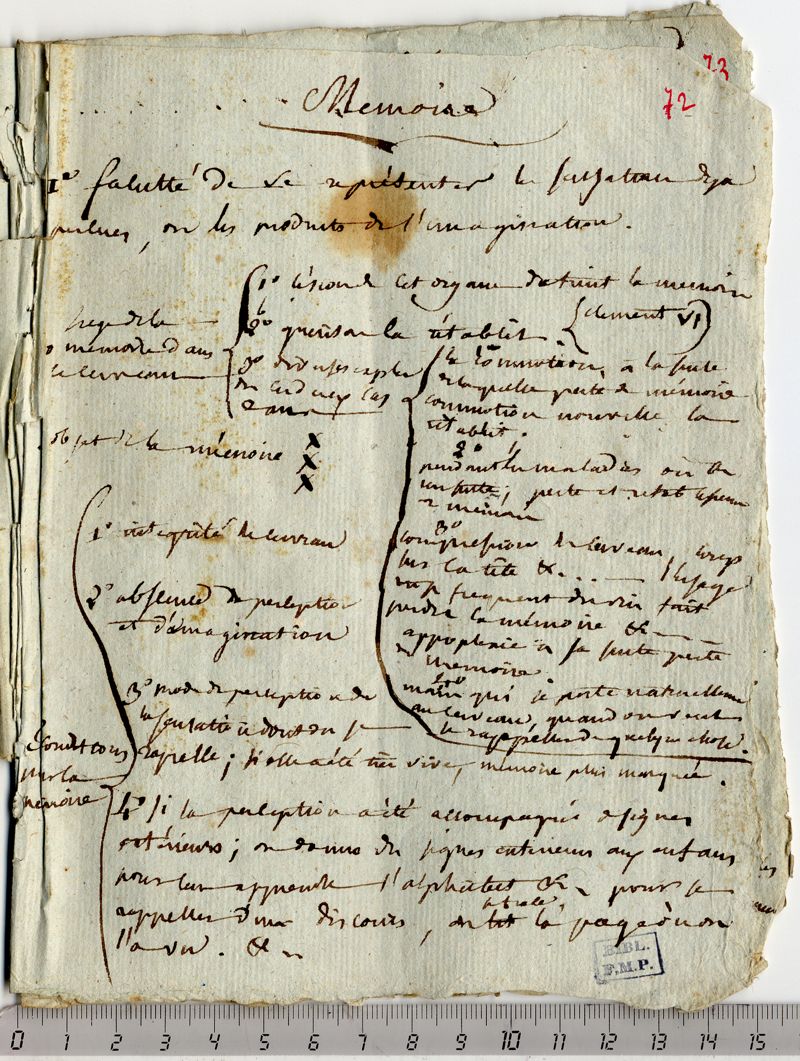 73
72
Memoire
1º faculté de se représenter la sensation deja
perçues, ou les produits de l'imagination.
siege de la
memoire dans
le cerveau
1º lésion de cet organe detruit la memoire
2º guérison la rétablit. clement VI
3º
la commotion, à la suite
de laquelle perte de mémoire
commotion nouvelle la
rétablit.
2º
pendant les maladies ou
; perte et
mémoire
3º
compression du cerveau, coups
sur la tête &... l'usage
trop frequent du vin fait
perdre la mémoire &
appoplexie à sa suite perte
memoire.
main qui se porte naturellement
au cerveau, quand on veut
se rappeller de quelque chose.
objet de la mémoire x
x
x
Conditions
pour la
mémoire
1º integrité du cerveau
2º absence de perception
et d'imagination
3º mode de perception de
la sensation dont on se
rapelle; si elle a été très vive, mémoire plus marquée.
4º si la perception a été accompagnée de signes
extérieurs; on donne des signes exterieurs aux enfans
pour leur apprendre l'alphabet &c pour se
rappeller d'un discours, on lit la page où on
l'a vu. &
BIBL.
F.M.P.
0 1 2 3 4 5 6 7 8 9 10 11 12 13 14 15